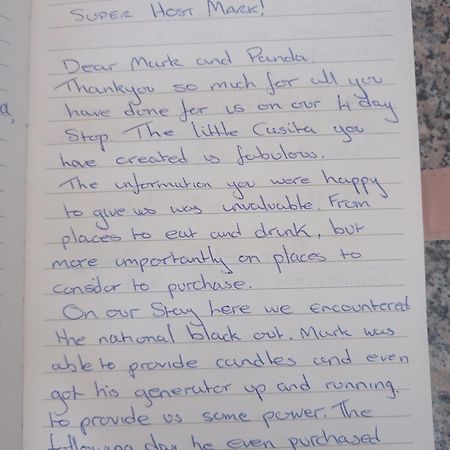 SUPER HOST MARK!
Dear Mark and Panda.
Thankyou so much for all you
have done for us on our 4 day
Stop. The little Casita you
have created is fabulous.
The information you were happy
to give us was invaluable. From
places to eat and drink, but
more importantly on places to
consider to purchase.
On our Stay here we encountered
the national black out. Mark was
able to provide candles and even
got his generator up and running
to provide us some power. The
following day he even purchased